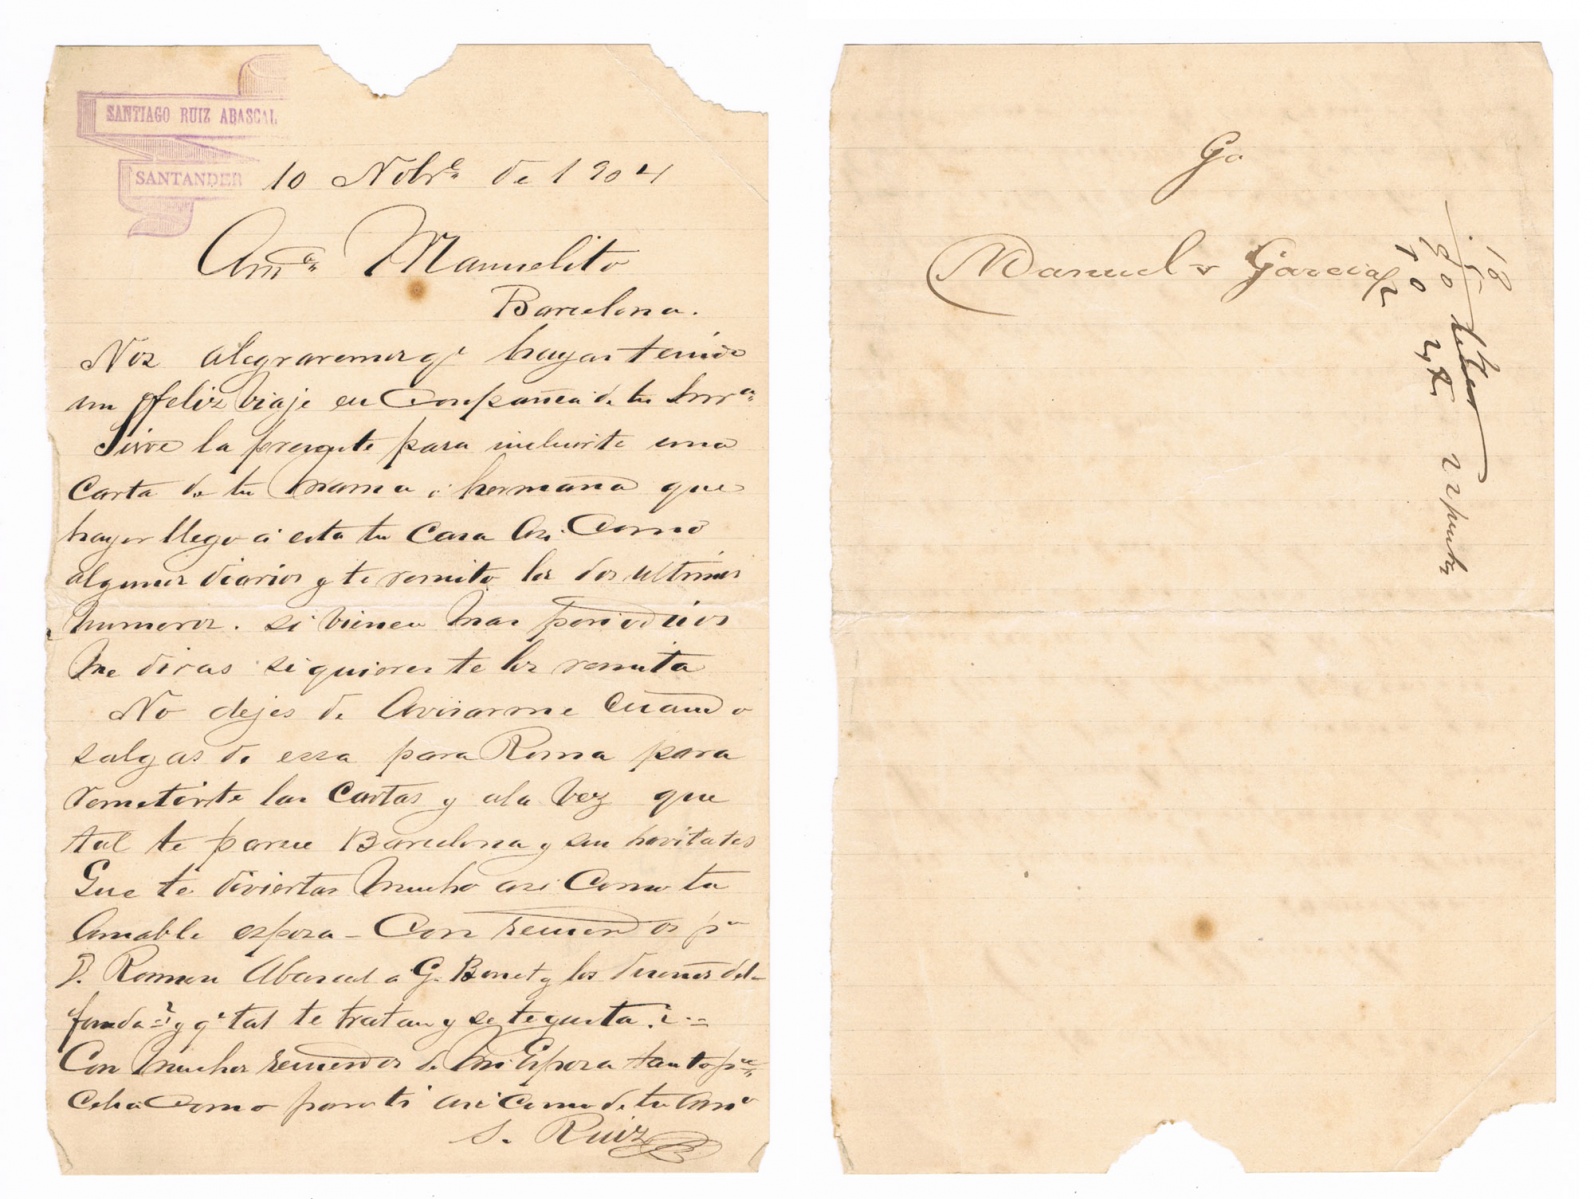 SANTIAGO RUIZ ABASCAL
SANTANDER
10 Nobre. de 1904
Amo. Manuelito
Barcelona.
Nos alegraremos qe hayas tenido
un feliz viaje en Compañia de tu Sra.
Sirve la presente para incluirte una
Carta de tu mama i hermana que
hayer llego á esta tu Casa Asi Como
algunos diarios y te remito los dos ultimos
numeros. si vienen mas periodicos
me diras si quieres te los remita
No dejes de Avisarme Cuando
salgas de essa para Roma para
remetirte las Cartas y ala vez que
tal te parece Barcelona y sus
Que te diviertas mucho asi Como tu
Amable esposa - Con recuerdos pa
D. Ramon Abascal a G. Bonet y los dueños dela
fonda y qe tal te tratan y se te gusta
Con muchos recuerdos de mi Esposa tanto pa
Celia Como para ti asi como de tu Amo
S. Ruiz
Manuel Garcia
18
5
90
10
22